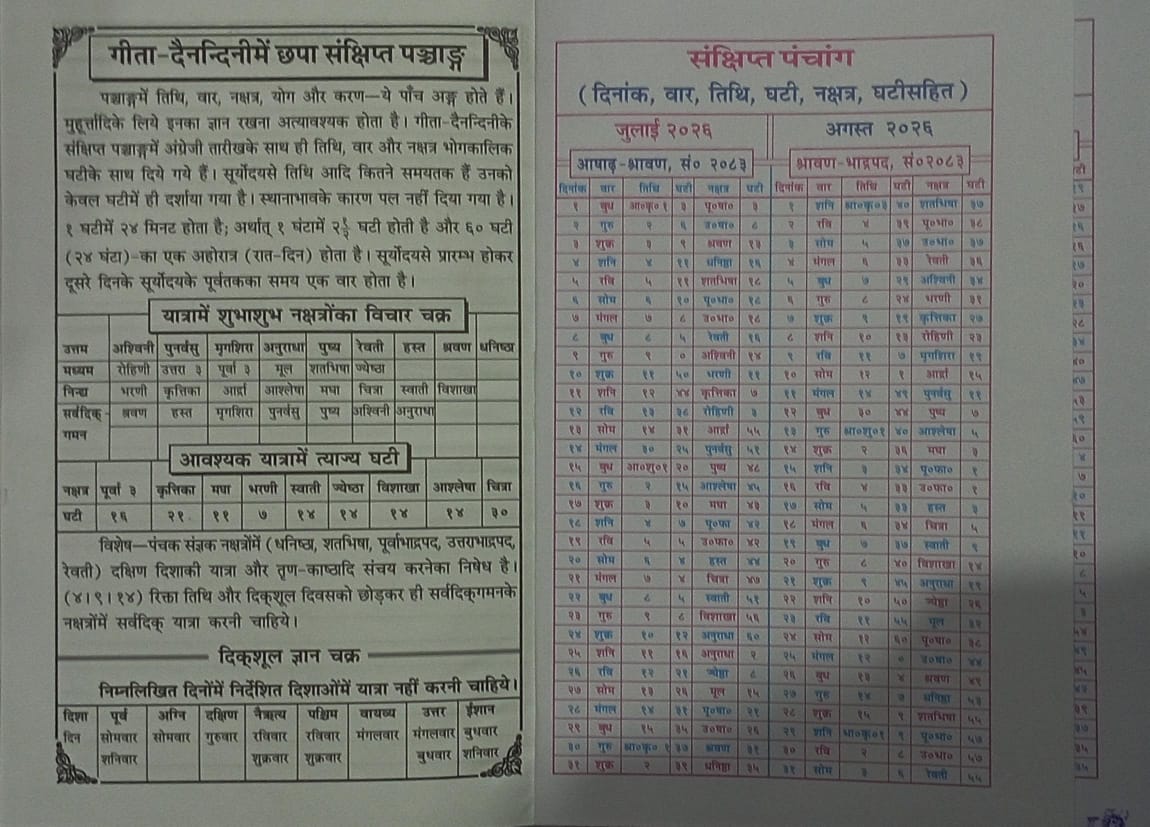 गीता-दैनन्दिनीमें छपा संक्षिप्त पञ्चाङ्ग
पञ्चाङ्गमें तिथि, वार, नक्षत्र, योग और करण—ये पाँच अङ्ग होते हैं।
मुहूर्त्तादिके लिये इनका ज्ञान रखना अत्यावश्यक होता है। गीता-दैनन्दिनीके
संक्षिप्त पञ्चाङ्गमें अंग्रेजी तारीखके साथ ही तिथि, वार और नक्षत्र भोगकालिक
घटीके साथ दिये गये हैं। सूर्योदयसे तिथि आदि कितने समयतक हैं उनको
केवल घटीमें ही दर्शाया गया है। स्थानाभावके कारण पल नहीं दिया गया है।
१ घटीमें २४ मिनट होता है; अर्थात् १ घंटामें २१/२ घटी होती है और ६० घटी
(२४ घंटा)-का एक अहोरात्र (रात-दिन) होता है। सूर्योदयसे प्रारम्भ होकर
दूसरे दिनके सूर्योदयके पूर्वतकका समय एक वार होता है।
यात्रामें शुभाशुभ नक्षत्रोंका विचार चक्र
उत्तम अश्विनी पुनर्वसु मृगशिरा अनुराधा पुष्य रेवती हस्त श्रवण धनिष्ठा
मध्यम रोहिणी उत्तरा ३ पूर्वा ३ मूल शतभिषा ज्येष्ठा
निन्द्य भरणी कृत्तिका आर्द्रा आश्लेषा मघा चित्रा स्वाती विशाखा
सर्वदिक्- श्रवण हस्त मृगशिरा पुनर्वसु पुष्य अश्विनी अनुराधा
गमन
आवश्यक यात्रामें त्याज्य घटी
नक्षत्र पूर्वा ३ कृत्तिका मघा भरणी स्वाती ज्येष्ठा विशाखा आश्लेषा चित्रा
घटी १६ २१ ११ ७ १४ १४ १४ १४ ३०
विशेष—पंचक संज्ञक नक्षत्रोंमें (धनिष्ठा, शतभिषा, पूर्वाभाद्रपद, उत्तराभाद्रपद,
रेवती) दक्षिण दिशाकी यात्रा और तृण-काष्ठादि संचय करनेका निषेध है।
(४।९।१४) रिक्ता तिथि और दिक्शूल दिवसको छोड़कर ही सर्वदिक्गमनके
नक्षत्रोंमें सर्वदिक् यात्रा करनी चाहिये।
दिक्शूल ज्ञान चक्र
निम्नलिखित दिनोंमें निर्देशित दिशाओंमें यात्रा नहीं करनी चाहिये।
दिशा पूर्व अग्नि दक्षिण नैऋत्य पश्चिम वायव्य उत्तर ईशान
दिन सोमवार सोमवार गुरुवार रविवार रविवार मंगलवार मंगलवार बुधवार
शनिवार शुक्रवार शुक्रवार बुधवार शनिवार
संक्षिप्त पंचांग
(दिनांक, वार, तिथि, घटी, नक्षत्र, घटीसहित)
जुलाई २०२६ अगस्त २०२६
आषाढ़-श्रावण, सं० २०८३ श्रावण-भाद्रपद, सं०२०८३
दिनांक वार तिथि घटी नक्षत्र घटी दिनांक वार तिथि घटी नक्षत्र घटी
१ बुध आ०कृ०१ ३ पू०षा० ३ १ शनि श्रा०कृ०३ ४० शतभिषा ३७
२ गुरु २ ६ उ०षा० ८ २ रवि ४ ३९ पू०भा० ३८
३ शुक्र ३ ९ श्रवण १३ ३ सोम ५ ३७ उ०भा० ३७
४ शनि ४ ११ धनिष्ठा १६ ४ मंगल ६ ३३ रेवती ३६
५ रवि ५ ११ शतभिषा १८ ५ बुध ७ २९ अश्विनी ३४
६ सोम ६ १० पू०भा० १८ ६ गुरु ८ २४ भरणी ३१
७ मंगल ७ ८ उ०भा० १८ ७ शुक्र ९ १९ कृत्तिका २७
८ बुध ८ ५ रेवती १६ ८ शनि १० १३ रोहिणी २३
९ गुरु ९ ० अश्विनी १४ ९ रवि ११ ७ मृगशिरा १९
१० शुक्र ११ ५० भरणी ११ १० सोम १२ १ आर्द्रा १५
११ शनि १२ ४४ कृत्तिका ७ ११ मंगल १४ ४९ पुनर्वसु ११
१२ रवि १३ ३८ रोहिणी ३ १२ बुध ३० ४४ पुष्य ७
१३ सोम १४ ३१ आर्द्रा ५५ १३ गुरु श्रा०शु०१ ४० आश्लेषा ५
१४ मंगल ३० २५ पुनर्वसु ५१ १४ शुक्र २ ३६ मघा ३
१५ बुध आ०शु०१ २० पुष्य ४८ १५ शनि ३ ३४ पू०फा० १
१६ गुरु २ १५ आश्लेषा ४५ १६ रवि ४ ३३ उ०फा० १
१७ शुक्र ३ १० मघा ४३ १७ सोम ५ ३३ हस्त ३
१८ शनि ४ ७ पू०फा ४२ १८ मंगल ६ ३४ चित्रा ५
१९ रवि ५ ५ उ०फा० ४२ १९ बुध ७ ३७ स्वाती ९
२० सोम ६ ४ हस्त ४४ २० गुरु ८ ४० विशाखा १४
२१ मंगल ७ ४ चित्रा ४७ २१ शुक्र ९ ४५ अनुराधा १९
२२ बुध ८ ५ स्वाती ५१ २२ शनि १० ५० ज्येष्ठा २६
२३ गुरु ९ ८ विशाखा ५६ २३ रवि ११ ५५ मूल ३२
२४ शुक्र १० १२ अनुराधा ६० २४ सोम १२ ६० पू०षा० ३८
२५ शनि ११ १६ अनुराधा २ २५ मंगल १२ ० उ०षा० ४४
२६ रवि १२ २१ ज्येष्ठा ८ २६ बुध १३ ४ श्रवण ४९
२७ सोम १३ २६ मूल १५ २७ गुरु १४ ७ धनिष्ठा ५३
२८ मंगल १४ ३१ पू०षा० २१ २८ शुक्र १५ ९ शतभिषा ५५
२९ बुध १५ ३५ उ०षा० २६ २९ शनि भा०कृ०१ ९ पू०भा० ५७
३० गुरु श्रा०कृ० १ ३७ श्रवण ३१ ३० रवि २ ८ उ०भा० ५७
३१ शुक्र २ ३९ धनिष्ठा ३५ ३१ सोम ३ ६ रेवती ५५